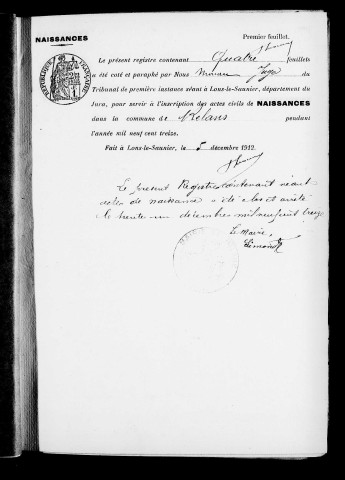 NAISSANCES
Premier feuillet.
Le présent registre contenant Quatre feuillets
a été coté et paraphé par Nous Juge du
Tribunal de première instance séant à Lons-le-Saunier, département du
Jura, pour servir à l'inscription des actes civils de NAISSANCES
dans la commune de pendant
l'année mil neuf cent treize.
Fait à Lons-le-Saunier, le 5 décembre 1912.
Le présent Registre contenant
actes de naissance a été clos et arrêté
le trente un décembre mil neuf cent treize
Le Maire,
RÉPUBLIQUE FRANÇAISE